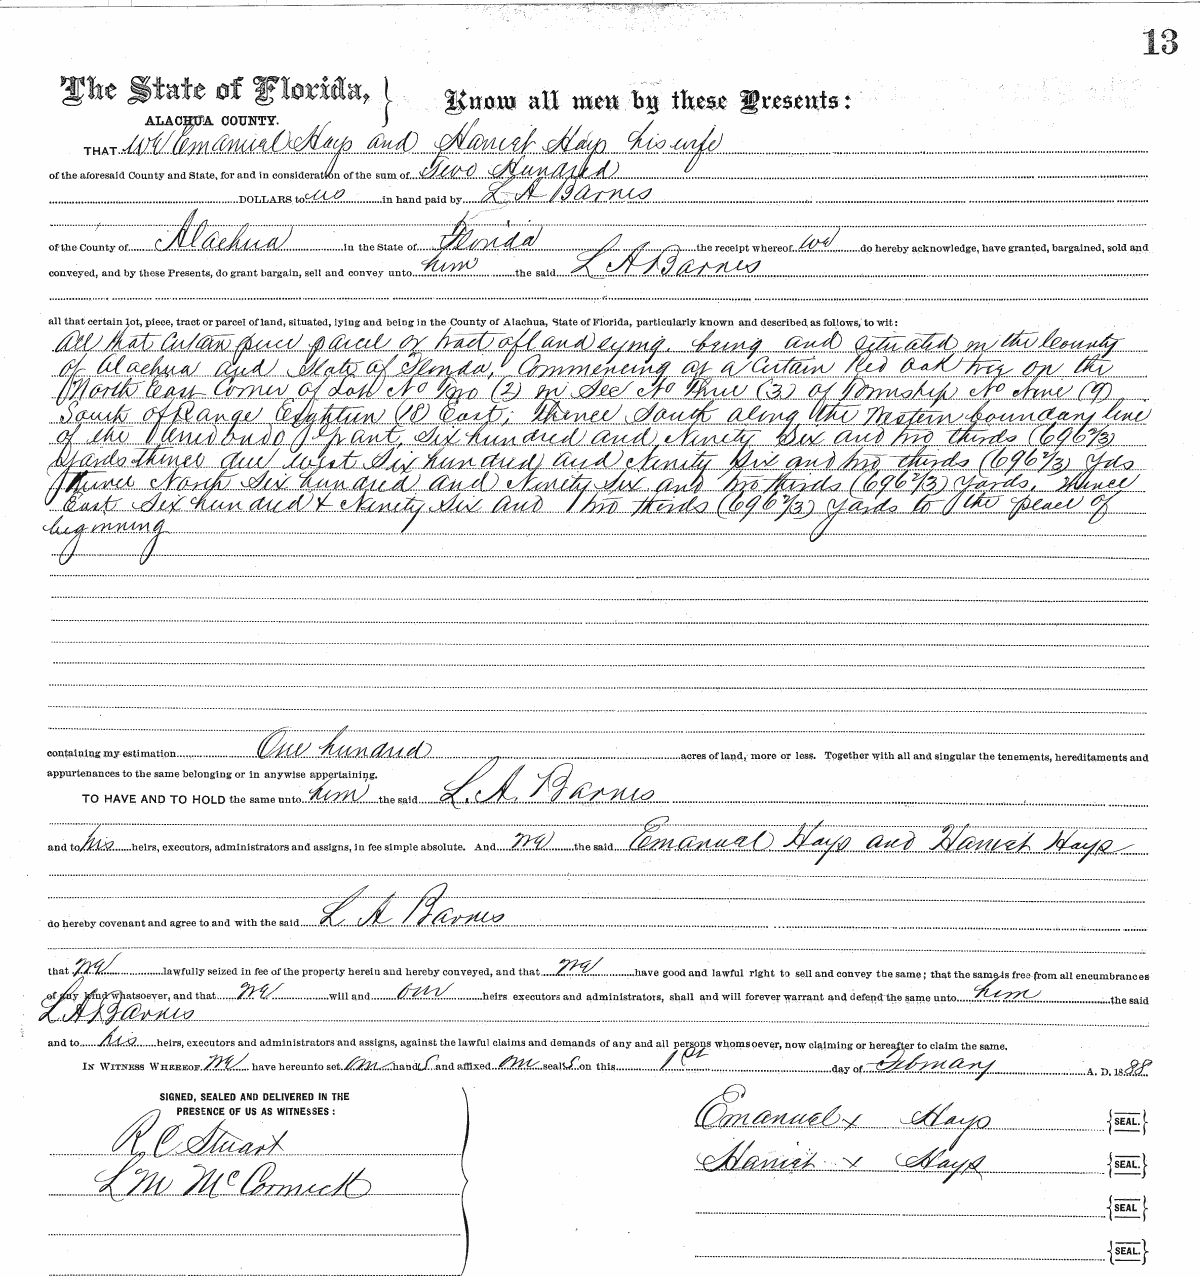 13
The State of Florida,
ALACHUA COUNTY.
Know all men by these Presents:
THAT we Emanuel Hays and Harriet Hays his wife
of the aforesaid County and State, for and in consideration of the sum of Two Hundred
DOLLARS to us in hand paid by L A Barnes
of the County of Alachua in the State of Florida the receipt whereof we do hereby acknowledge, have granted, bargained, sold and
conveyed, and by these Presents, do grant bargain, sell and convey unto him the said L A Barnes
all that certain lot, piece, tract or parcel of land, situated, lying and being in the County of Alachua, State of Florida, particularly known and described as follows, to wit:
All that certain piece parcel or tract of land lying, being and situated in the County
of Alachua and State of Florida, Commencing at a Certain Red oak tree on the
North East Corner of Lot No Two (2) in Sec No Three (3) of Township No Nine (9)
South of Range Eighteen (18) East; thence South along the Western boundary line
of the Arredondo Grant, Six hundred and Ninety Six and two thirds (696 2/3)
Yards thence due west Six hundred and Ninety Six and two thirds (696 2/3) Yds
Thence North Six hundred and Ninety Six and two thirds (696 2/3) Yards, Thence
East Six hundred & Ninety Six and Two thirds (696 2/3) Yards to the peace of
beginning
containing my estimation One hundred acres of land, more or less. Together with all and singular the tenements, hereditaments and
appurtenances to the same belonging or in anywise appertaining.
TO HAVE AND TO HOLD the same unto him the said L. A. Barnes
and to his heirs, executors, administrators and assigns, in fee simple absolute. And we the said Emanuel Hays and Harriet Hays
do hereby covenant and agree to and with the said L A Barnes
that we lawfully seized in fee of the property herein and hereby conveyed, and that we have good and lawful right to sell and convey the same; that the same is free from all encumbrances
of any kind whatsoever, and that we will and our heirs executors and administrators, shall and will forever warrant and defend the same unto him the said
L A Barnes
and to his heirs, executors and administrators and assigns, against the lawful claims and demands of any and all persons whomsoever, now claiming or hereafter to claim the same.
IN WITNESS WHEREOF we have hereunto set our hands and affixed our seals on this 1st day of February A. D. 1888
SIGNED, SEALED AND DELIVERED IN THE
PRESENCE OF US AS WITNESSES:
R C Stuart
L M McCormick
Emanuel x Hays {SEAL.}
Harriet x Hays {SEAL.}
{SEAL}
{SEAL.}